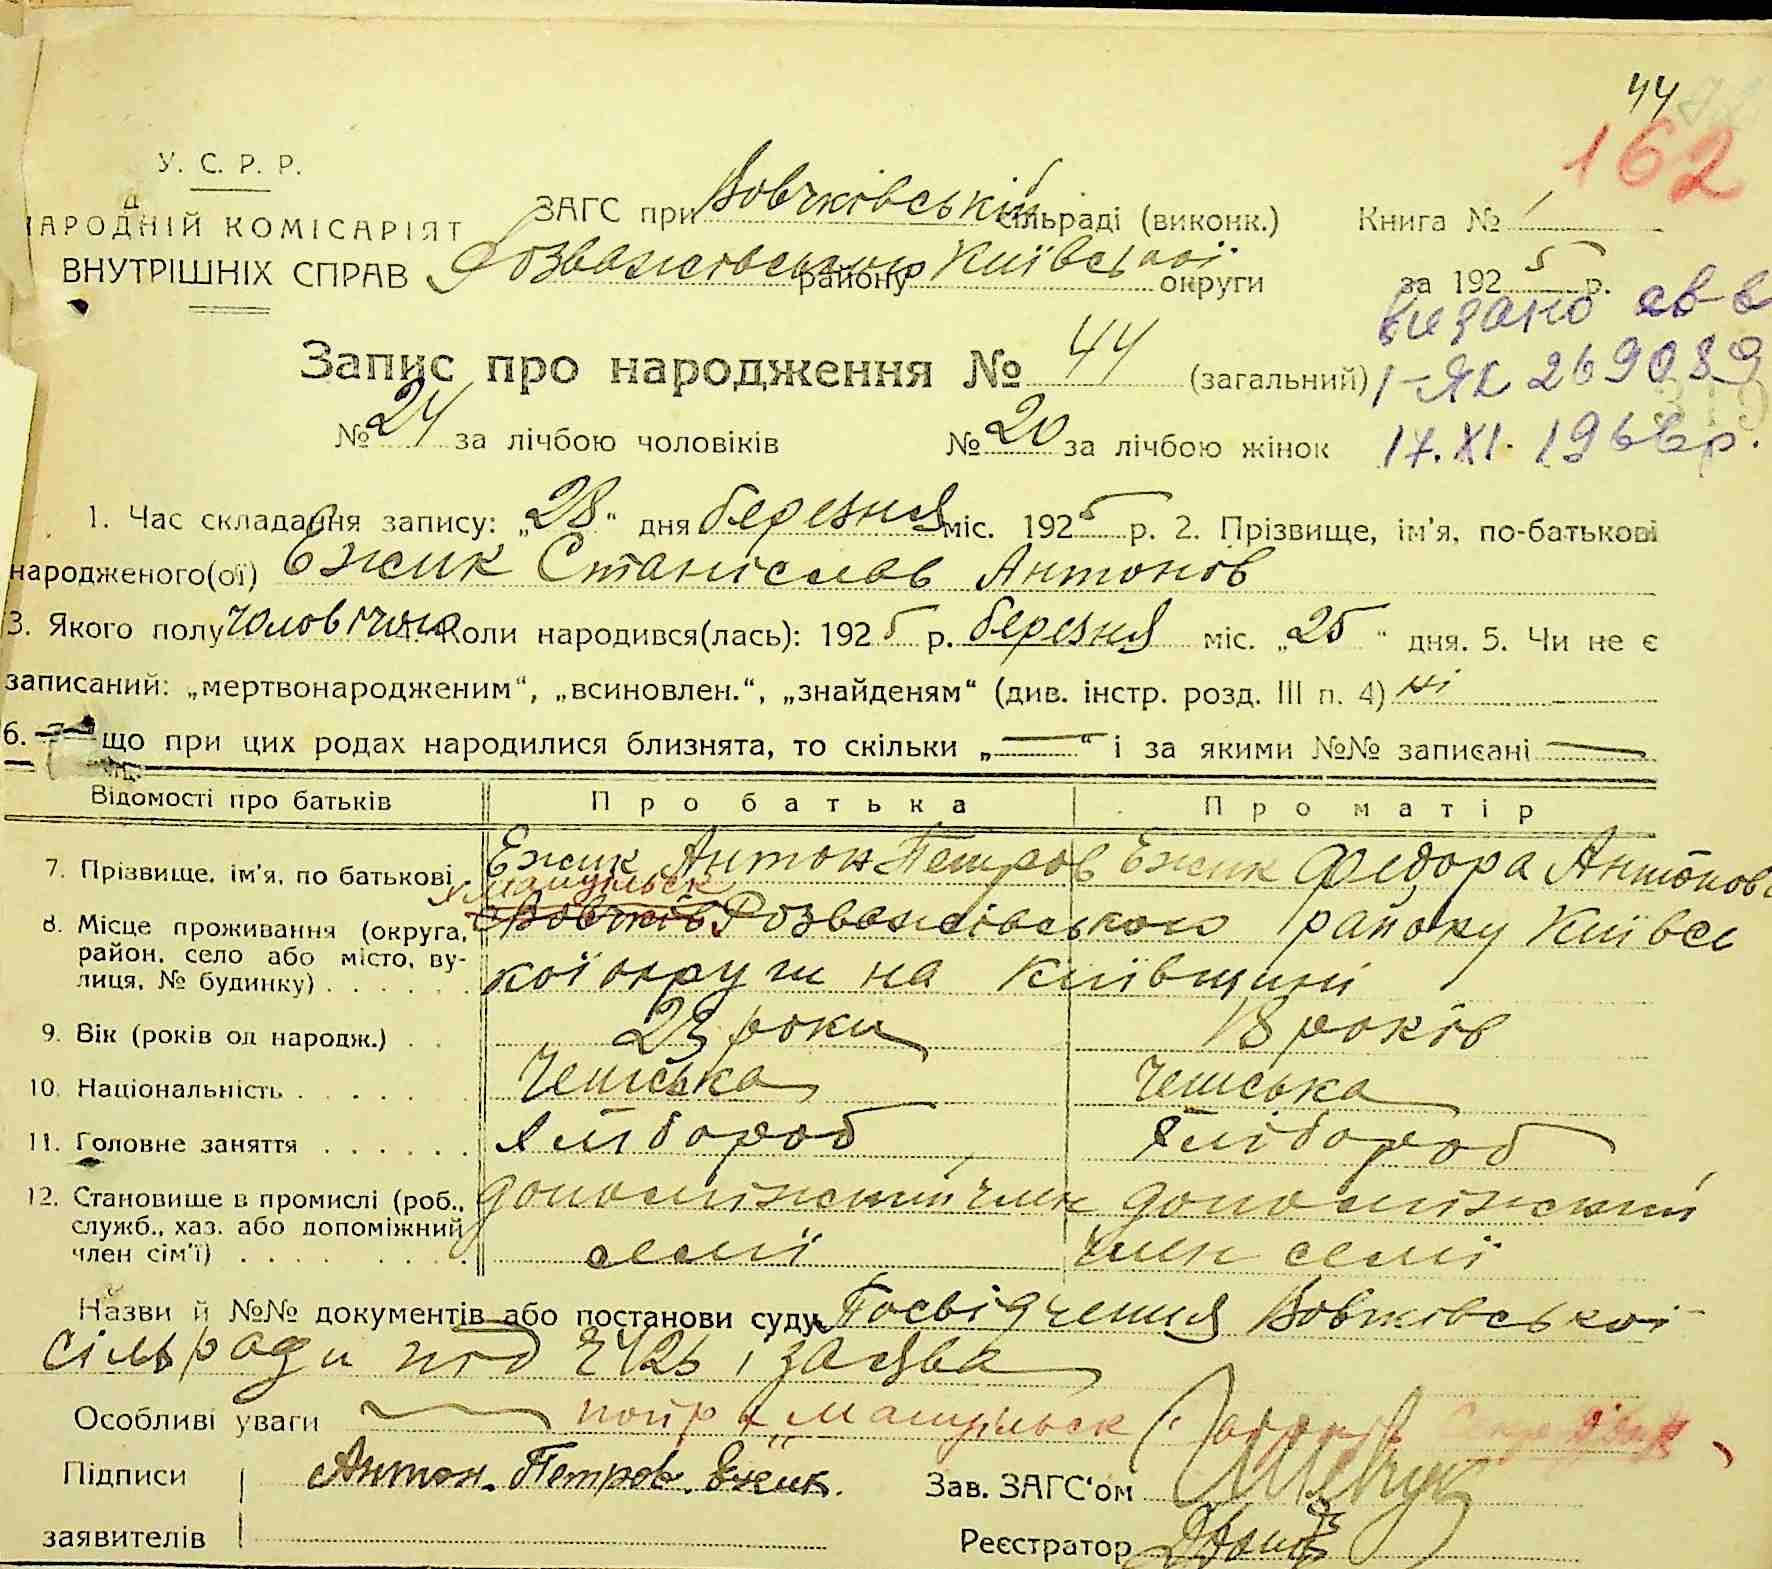 44
162
У. С. Р. Р.
НАРОДНІЙ КОМІСАРІЯТ
ВНУТРІШНІХ СПРАВ
ЗАГС при Вовчківській сільраді (виконк.)
Розважівського району Київської округи
Книга № 1
за 1925 р.
видано св-в
I-ЯК 269089
17.XI.1966р.
Запис про народження № 44 (загальний)
№ 24 за лічбою чоловіків № 20 за лічбою жінок
1. Час складання запису: „28“ дня березня міс. 1925 р. 2. Прізвище, ім'я, по-батькові
народженого(ої) Ежик Станіслав Антонов
3. Якого полу чоловічого 4. Коли народився(лась): 1925 р. березня міс. „25“ дня. 5. Чи не є
записаний: „мертвонародженим“, „всиновлен.“, „знайденям“ (див. інстр. розд. III п. 4) ні
6. що при цих родах народилися близнята, то скільки „—“ і за якими №№ записані —
Відомості про батьків Про батька Про матір
7. Прізвище, ім'я, по батькові Ежик Антон Петров Ежик Федора Антонов
8. Місце проживання (округа, район, село або місто, вулиця, № будинку) Вовчків Розважівського району Київсь
кої округи на Київщині
9. Вік (років од народж.) 23 роки 18 років
10. Національність Чешська Чешська
11. Головне заняття Хлібороб Хлібороб
12. Становище в промислі (роб., служб., хаз. або допоміжний член сім'ї) допоміжний член допоміжний
семї член семї
Назви й №№ документів або постанови суду Посвідчення Вовчківської
сільради під 426 і заява
Особливі уваги
Підписи Антон Петров Ежик. Зав. ЗАГС'ом
заявителів Реєстратор